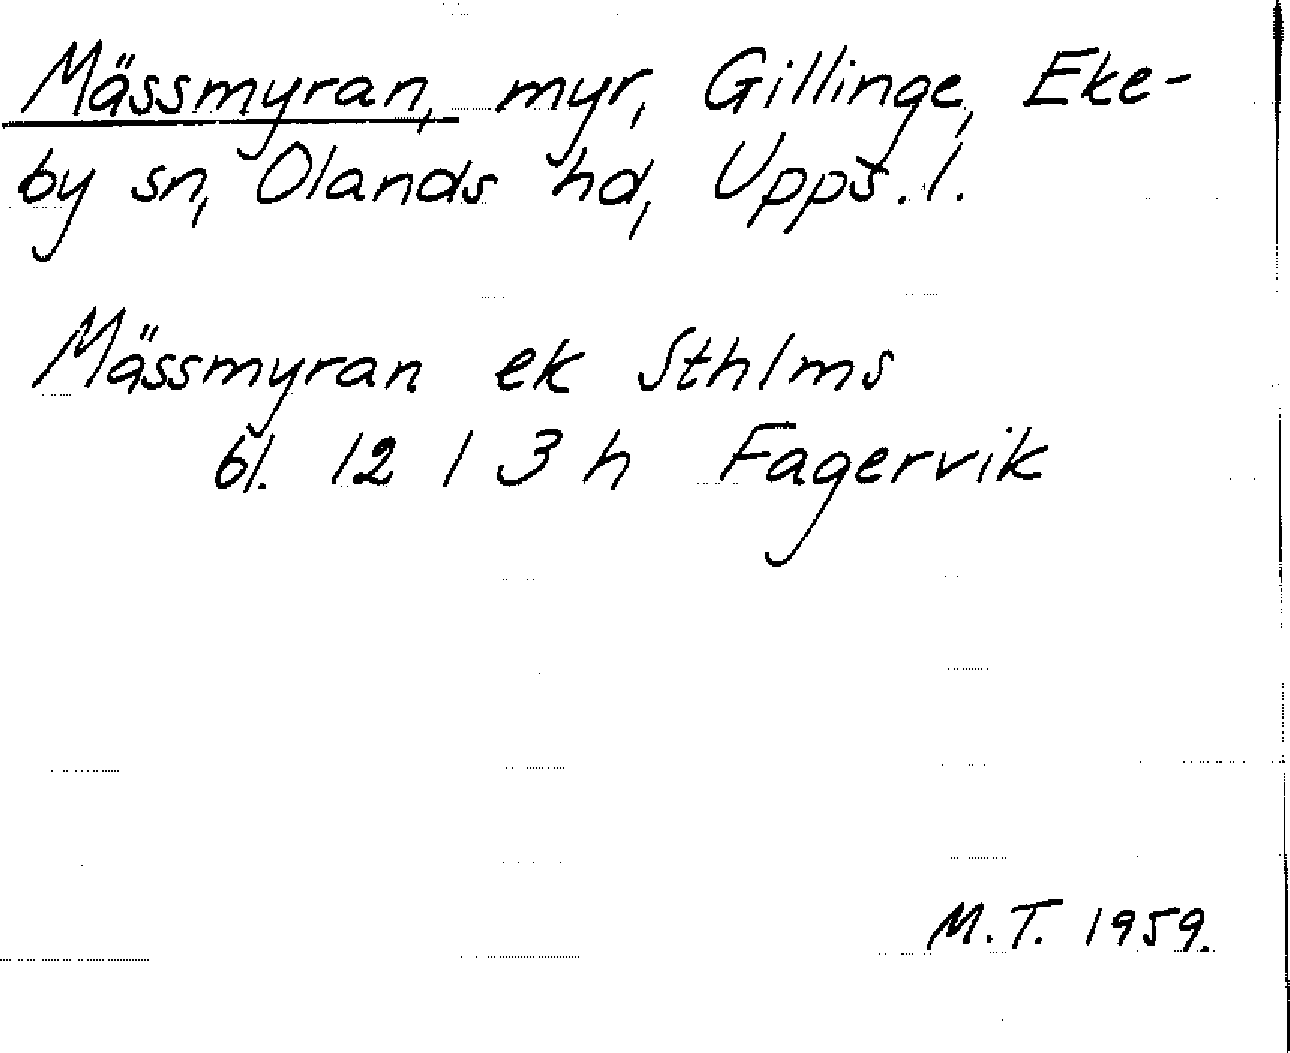 Mässmyran, myr, Gillinge, Eke-
by sn, Olands hd, Upps. l.
Mässmyran ek Sthlms
bl. 12 I 3 h Fagervik
M.T. 1959.